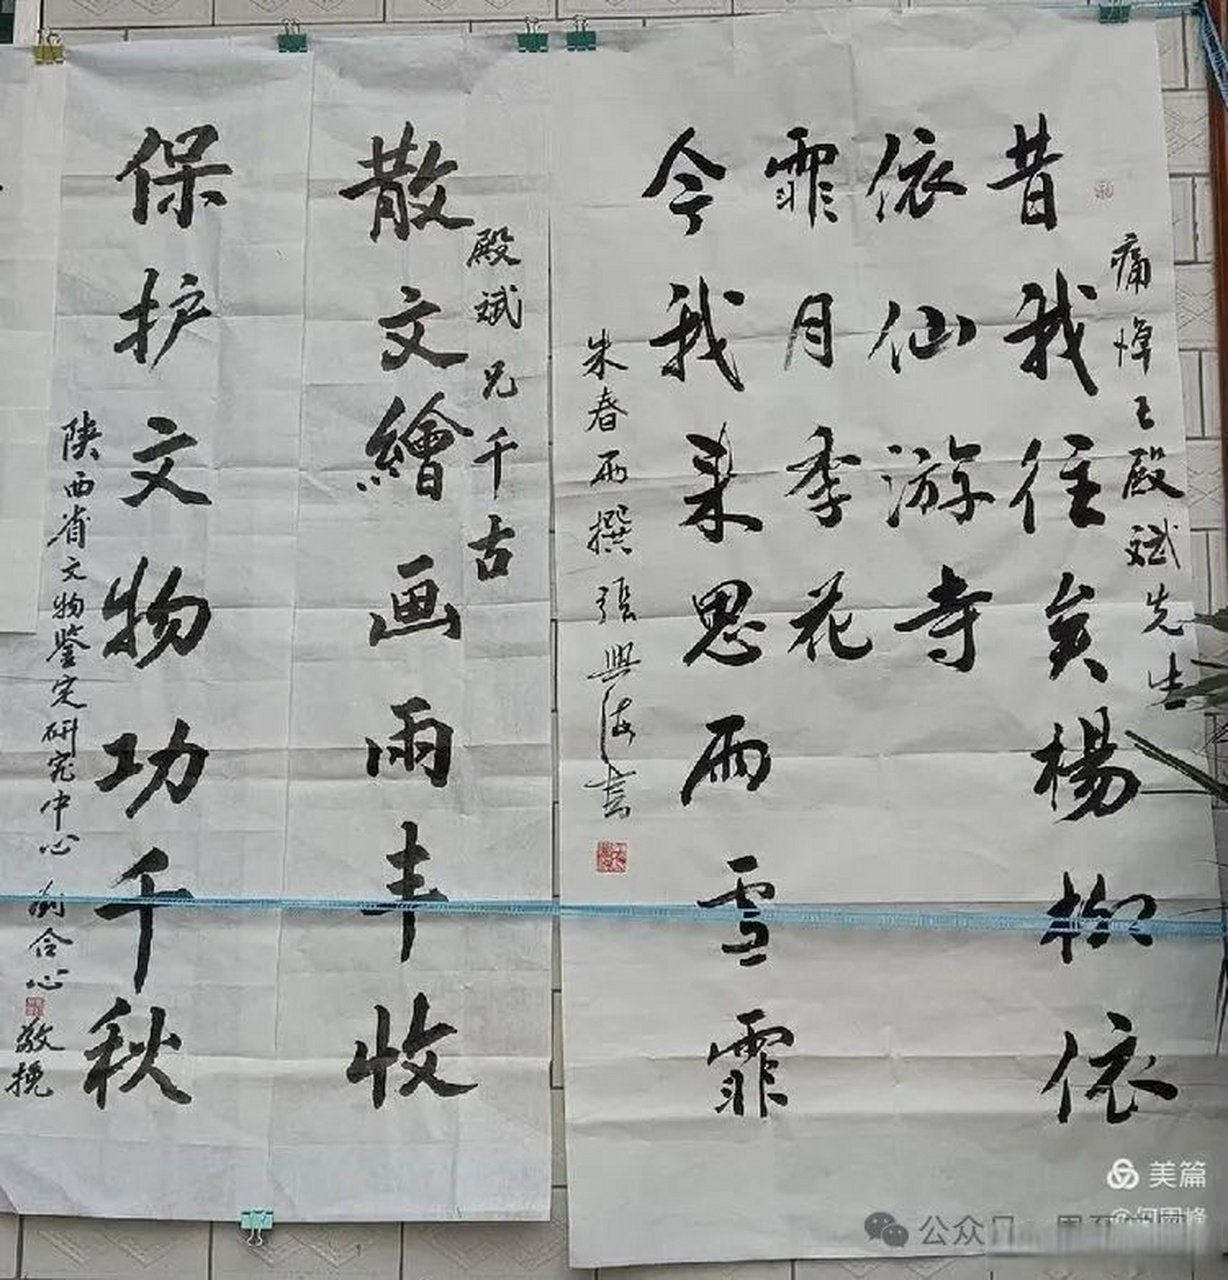 痛悼王殿斌先生
昔我往矣楊柳依
依仙游寺
霏月季花
今我来思雨雪霏
朱春雨撰張興海書
殿斌兄千古
散文繪画雨丰收
保护文物功千秋
陕西省文物鑒定研究中心 刘合心
敬挽
美篇
公众号